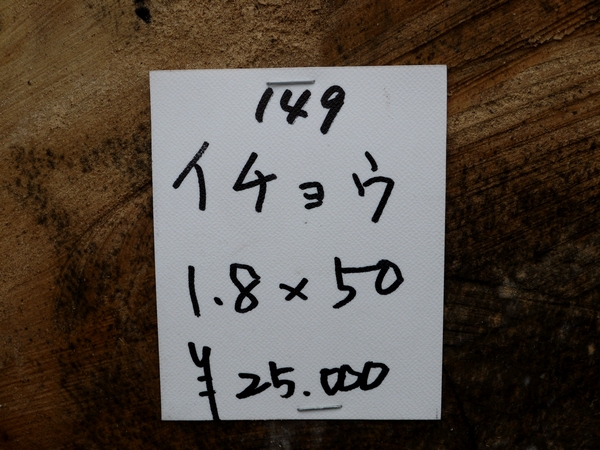 149
イチョウ
1.8×50
¥25.000